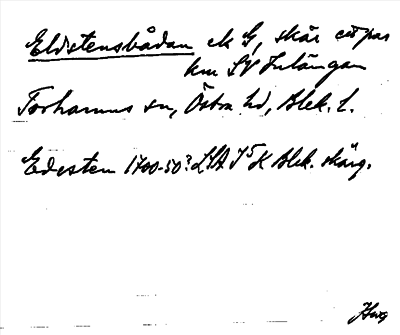 Eldstensbådan ek G, skär ett par
km SV Inlängan
Torhamns sn, Östra hd, Blek. l.
Edesten 1700-50? LSA I 5 K Blek. skärg.